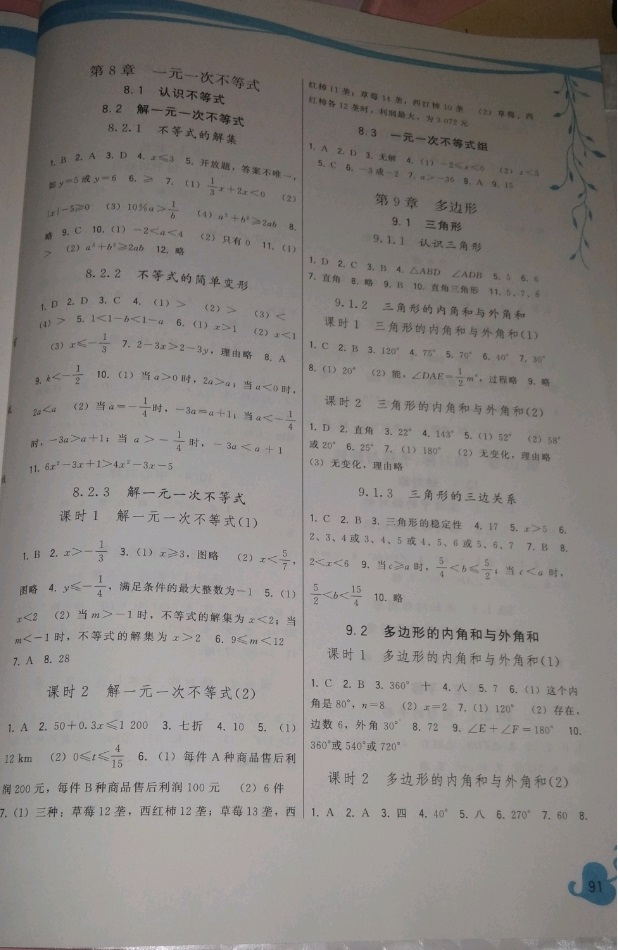 第8章 一元一次不等式
8.1 认识不等式
8.2 解一元一次不等式
8.2.1 不等式的解集
1. B 2. A 3. D 4. x≤3 5. 开放题,答案不唯一,
如 y=5 或 y=6 6. ≥ 7. (1) 1/3 x+2x<0 (2)
|x|-5≥0 (3) 10%a>1/6 (4) a²+b²≥2ab 8.
略 9. C 10. (1) -2<a<4 (2) 只有0 11. (1)
> (2) a²+b²≥2ab 12. 略
8.2.2 不等式的简单变形
1. D 2. D 3. C 4. (1) > (2) > (3) <
(4) > 5. 1<1-b<1-a 6. (1) x>1 (2) x<1
(3) x≤-1/3 7. 2-3x>2-3y,理由略 8. A
9. k<-1/2 10. (1) 当 a>0 时,2a>a;当 a<0 时,
2a<a (2) 当 a=-1/4 时,-3a=a+1;当 a<-1/4
时,-3a>a+1;当 a>-1/4 时,-3a<a+1
11. 6x²-3x+1>4x²-3x-5
8.2.3 解一元一次不等式
课时1 解一元一次不等式(1)
1. B 2. x>-1/3 3. (1) x≥3,图略 (2) x<5/7,
图略 4. y≤-1/4,满足条件的最大整数为-1 5. (1)
x<2 (2) 当 m>-1 时,不等式的解集为 x<2;当
m<-1 时,不等式的解集为 x>2 6. 9≤m<12
7. A 8. 28
课时2 解一元一次不等式(2)
1. A 2. 50+0.3x≤1 200 3. 七折 4. 10 5. (1)
12 km (2) 0≤t≤4/15 6. (1) 每件A种商品售后利
润200元,每件B种商品售后利润100元 (2) 6件
7. (1) 三种:草莓12垄,西红柿12垄;草莓13垄,西
红柿11垄;草莓14垄,西红柿10垄 (2) 草莓、西
红柿各12垄时,利润最大,为3 072元
8.3 一元一次不等式组
1. A 2. D 3. 无解 4. (1) -2≤x<0 (2) x<3
5. C 6. -3或-2 7. x>-36 8. A 9. 15
第9章 多边形
9.1 三角形
9.1.1 认识三角形
1. D 2. C 3. B 4. △ABD ∠ADB 5. 5 6. 6
7. 直角 8. 略 9. B 10. 直角三角形 11. 5、7、8
9.1.2 三角形的内角和与外角和
课时1 三角形的内角和与外角和(1)
1. C 2. B 3. 120° 4. 75° 5. 70° 6. 40° 7. 30°
8. (1) 20° (2) 能,∠DAE=1/2 m°,过程略 9. 略
课时2 三角形的内角和与外角和(2)
1. D 2. 直角 3. 22° 4. 143° 5. (1) 52° (2) 58°
或20° 6. 25° 7. (1) 180° (2) 无变化,理由略
(3) 无变化,理由略
9.1.3 三角形的三边关系
1. C 2. B 3. 三角形的稳定性 4. 17 5. x>5 6.
2、3、4或3、4、5或4、5、6或5、6、7 7. B 8.
2<x<6 9. 当 c≥a 时,5/4<b≤5/2;当 c<a 时,
5/2<b<15/4 10. 略
9.2 多边形的内角和与外角和
课时1 多边形的内角和与外角和(1)
1. C 2. B 3. 360° 十 4. 八 5. 7 6. (1) 这个内
角是80°,n=8 (2) x=2 7. (1) 120° (2) 存在,
边数6,外角30° 8. 72 9. ∠E+∠F=180° 10.
360°或540°或720°
课时2 多边形的内角和与外角和(2)
1. A 2. A 3. 四 4. 40° 5. 八 6. 270° 7. 60 8.
91